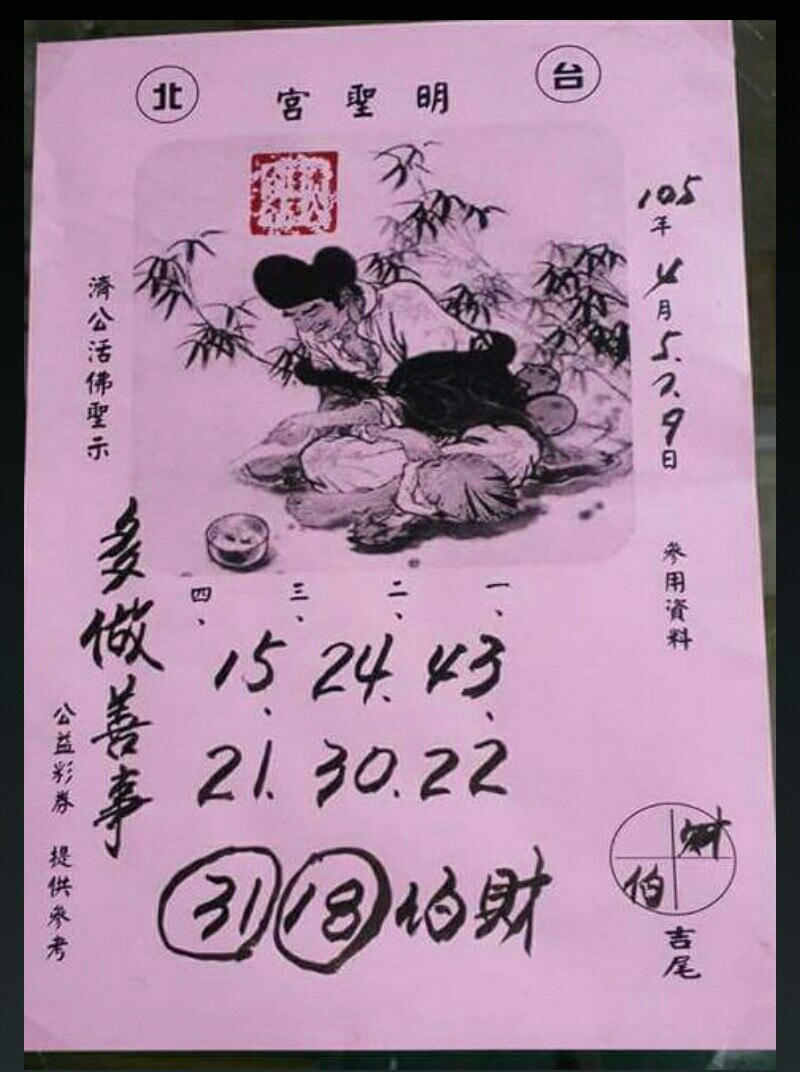 台北
明聖宮
105年4月5.7.9日
參用資料
一、
二、
三、
四、
43、24、15、
22.30.21.
財伯 18 31
財
伯
吉尾
濟公活佛聖示
多做善事
公益彩券 提供參考